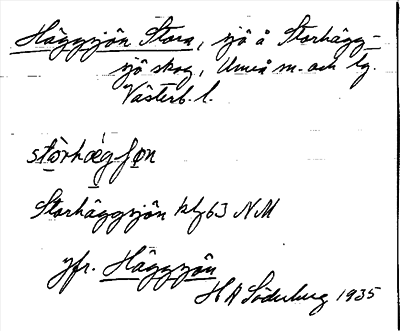 Häggsjön Stora, sjö å Storhägg-
sjö skog, Umeå sn. och lg.
Västerb. l.
stòrhæ̀gʃøn
Storhäggsjön 63 NM
jfr. Häggsjön
H A Söderberg 1935